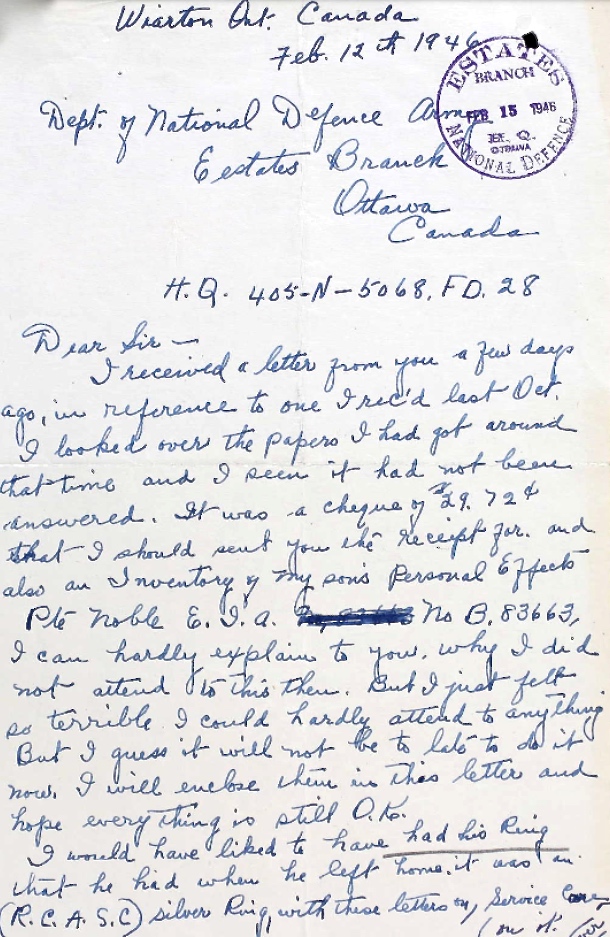 Wiarton Ont. Canada
Feb. 12th 1946
ESTATES
BRANCH
FEB 15 1946
H. Q.
OTTAWA
NATIONAL DEFENCE
Dept. of National Defence Army
Eestates Branch
Ottawa
Canada
H.Q. 405-N-5068, F.D. 28
Dear Sir —
I received a letter from you a few days
ago, in reference to one I rec'd last Oct.
I looked over the papers I had got around
that time and I seen it had not been
answered. It was a cheque of $29.72¢
that I should sent you the receipt for. and
also an Inventory of my son's Personal Effects
Pte Noble E. I. A. No B. 83663,
I can hardly explain to you, why I did
not attend to this then. But I just felt
so terrible I could hardly attend to anything
But I guess it will not be to late to do it
now. I will enclose them in this letter and
hope everything is still O.K.
I would have liked to have had his Ring
that he had when he left home. it was an
(R.C.A.S.C) silver Ring, with these letters on, Service Corps
on it.